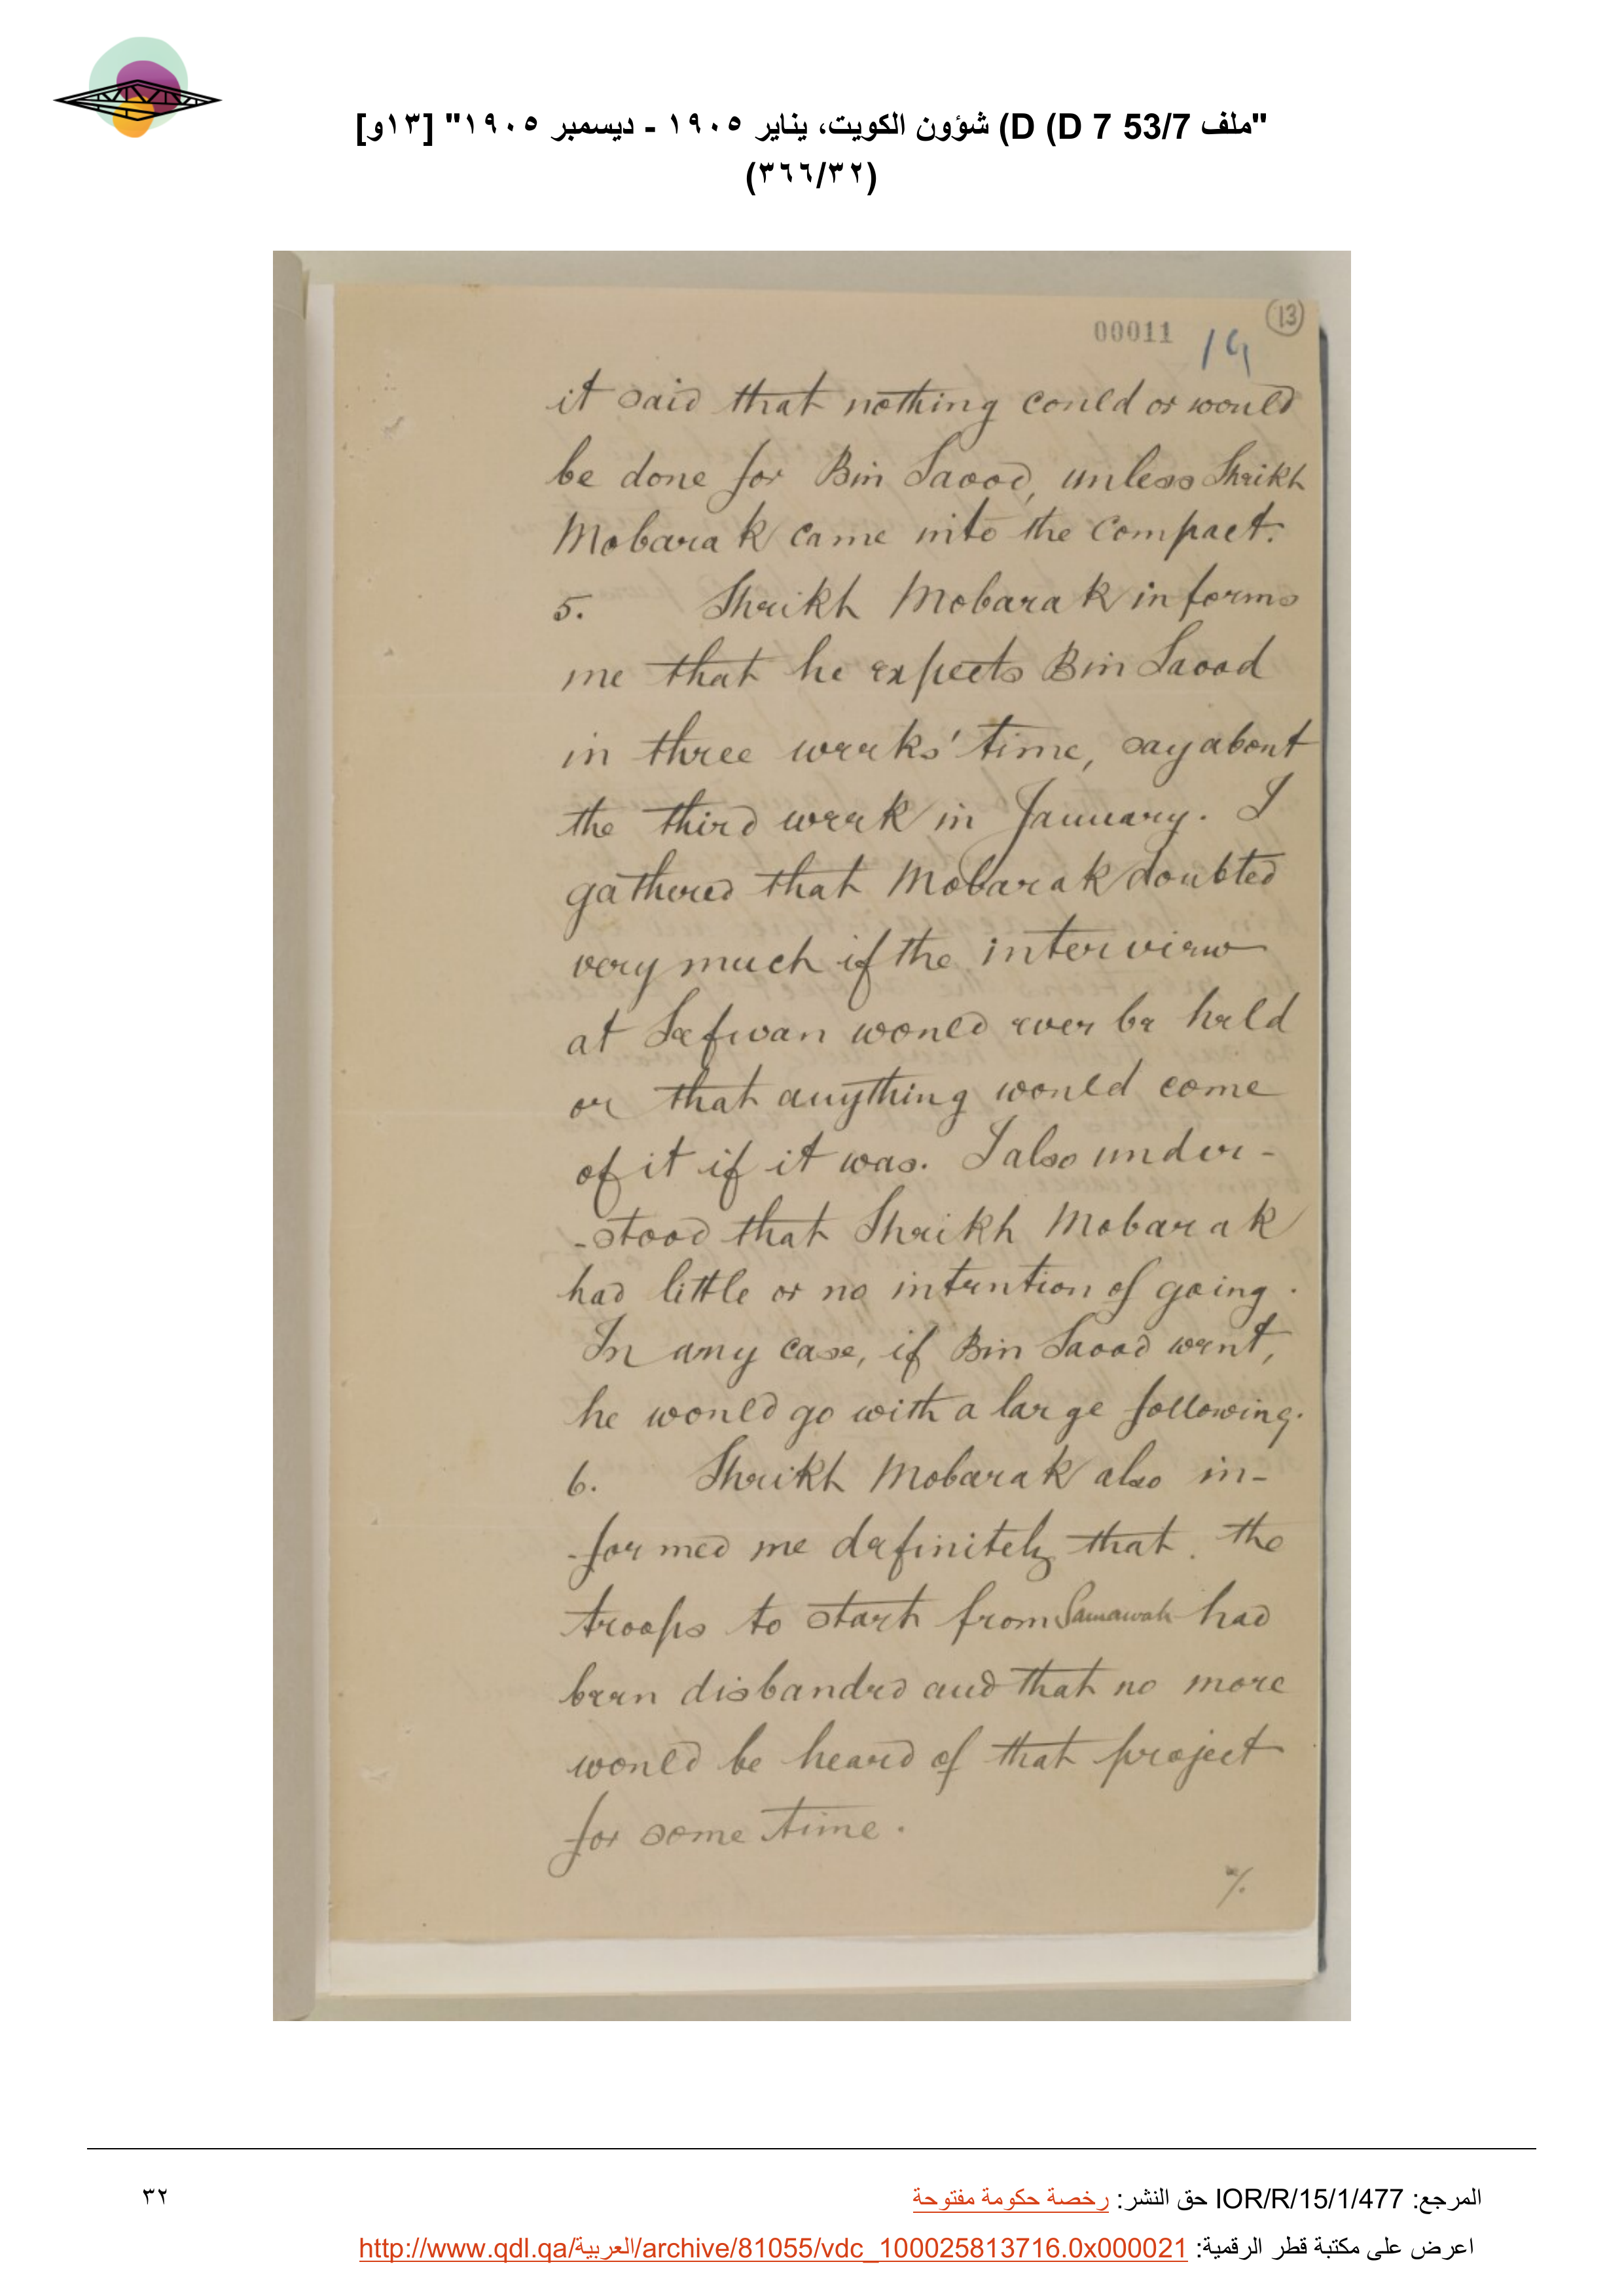 "ملف 53/7 D 7) D) شؤون الكويت، يناير ١٩٠٥ - ديسمبر ١٩٠٥" [١٣و]
(٣٦٦/٣٢)
13
00011
19
it said that nothing could or would
be done for Bin Saood, unless Sheikh
Mobarak came into the compact.
5. Sheikh Mobarak informs
me that he expects Bin Saood
in three weeks' time, say about
the third week in January. I
gathered that Mobarak doubted
very much if the interview
at Safwan would ever be held
or that anything would come
of it if it was. I also under-
-stood that Sheikh Mobarak
had little or no intention of going.
In any case, if Bin Saood went,
he would go with a large following.
6. Sheikh Mobarak also in-
-formed me definitely that the
troops to start from Samawah had
been disbanded and that no more
would be heard of that project
for some time.
المرجع: IOR/R/15/1/477 حق النشر: رخصة حكومة مفتوحة
٣٢
اعرض على مكتبة قطر الرقمية: http://www.qdl.qa/العربية/archive/81055/vdc_100025813716.0x000021